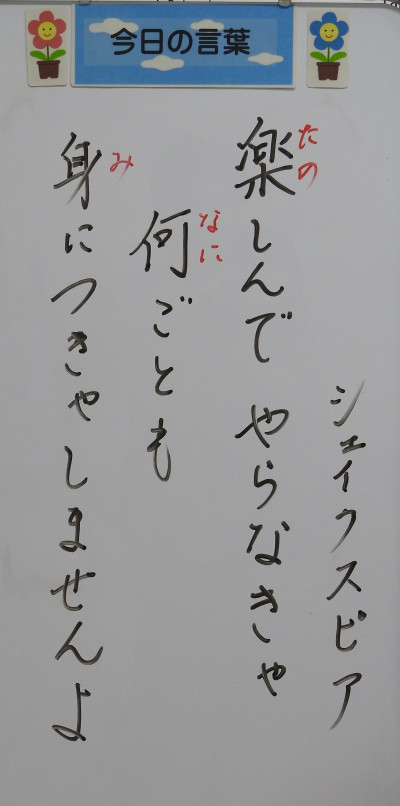 今日の言葉
シェイクスピア
楽しんでやらなきゃ
たの
何ごとも
なに
身につきゃしませんよ
み